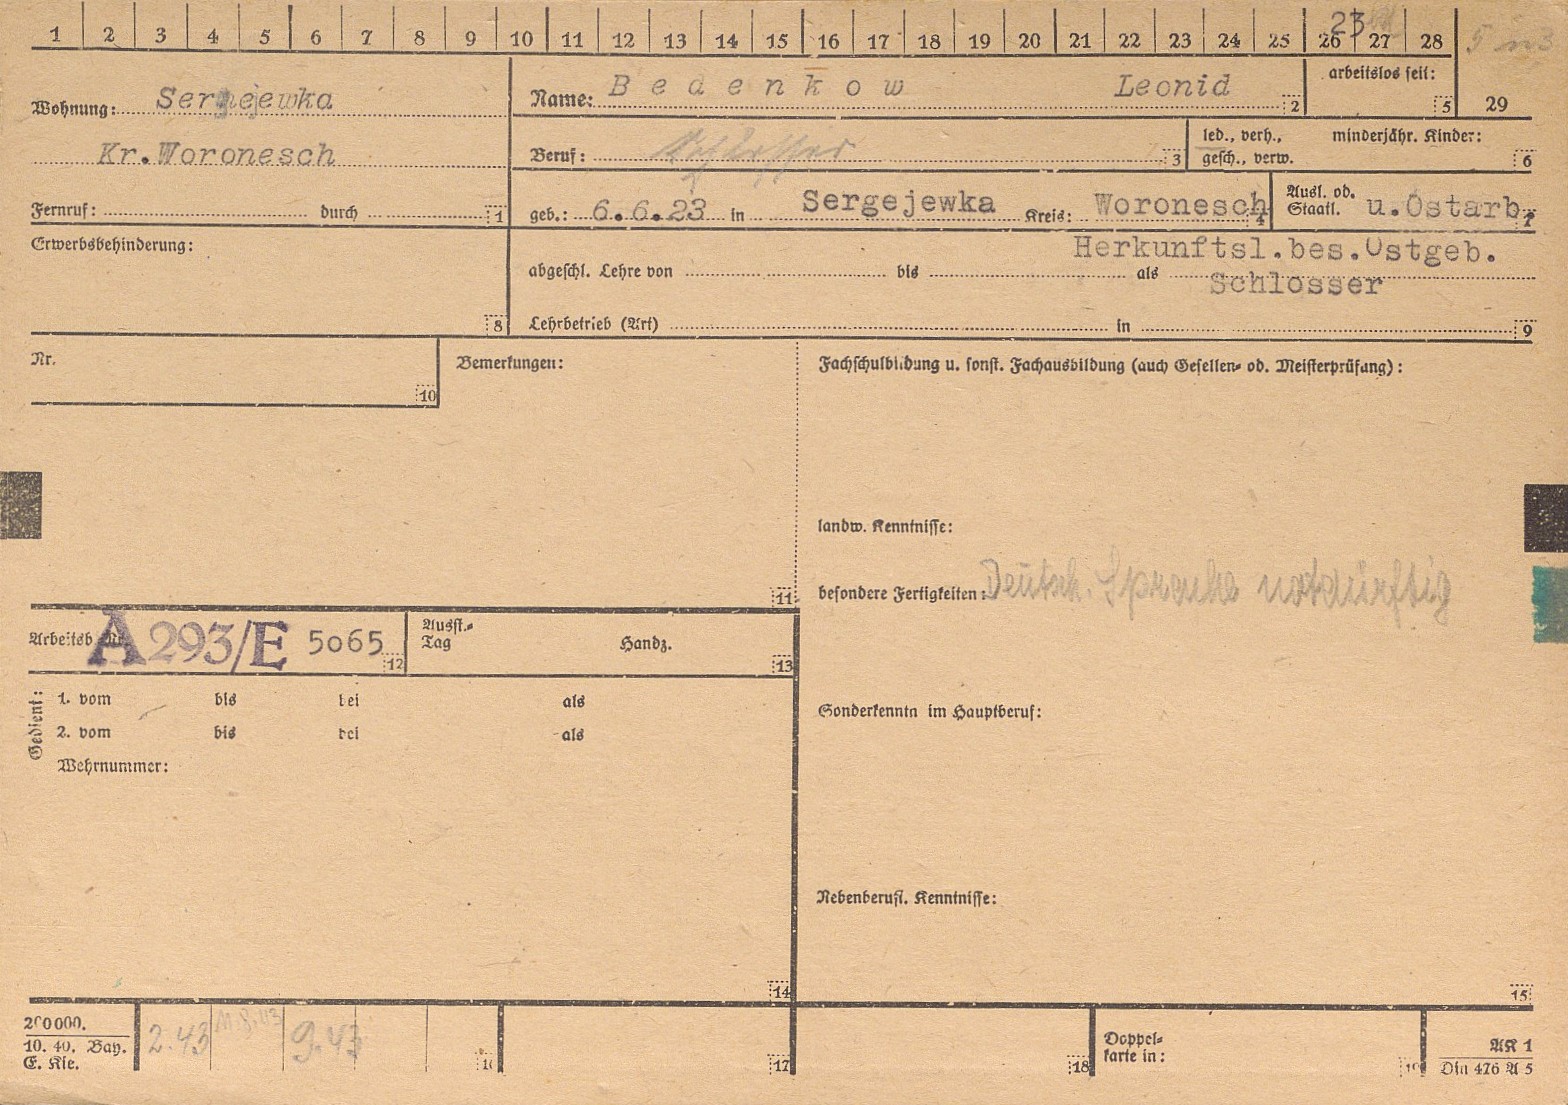 1 2 3 4 5 6 7 8 9 10 11 12 13 14 15 16 17 18 19 20 21 22 23 24 25 26 27 28
23
Wohnung: Sergejewka
Kr.Woronesch
Fernruf: durch 1
Name: Bedenkow Leonid 2
arbeitslos seit: 5
29
Beruf: Schlosser 3
led., verh., minderjähr. Kinder:
gesch., verw. 6
geb.: 6.6.23 in Sergejewka Kreis: Woronesch 4
Ausl. od.
Staatl. u.Ostarb. 7
Erwerbsbehinderung:
8
Herkunftsl.bes.Ostgeb.
abgeschl. Lehre von bis als
Schlosser
Lehrbetrieb (Art) in 9
Nr.
10
Bemerkungen:
11
Fachschulbildung u. sonst. Fachausbildung (auch Gesellen- od. Meisterprüfung):
landw. Kenntnisse:
besondere Fertigkeiten: Deutsch. Sprache notdürftig
Sonderkenntn im Hauptberuf:
Nebenberufl. Kenntnisse:
15
Arbeitsb Nr. A293/E 5065 12
Ausst.-
Tag Handz. 13
Gedient:
1. vom bis bei als
2. vom bis bei als
Wehrnummer:
14
200000.
10. 40. Bay.
E. Kie.
2.43 9.43
16 17 18
Doppel-
karte in: 19
AK 1
Din 476 A 5